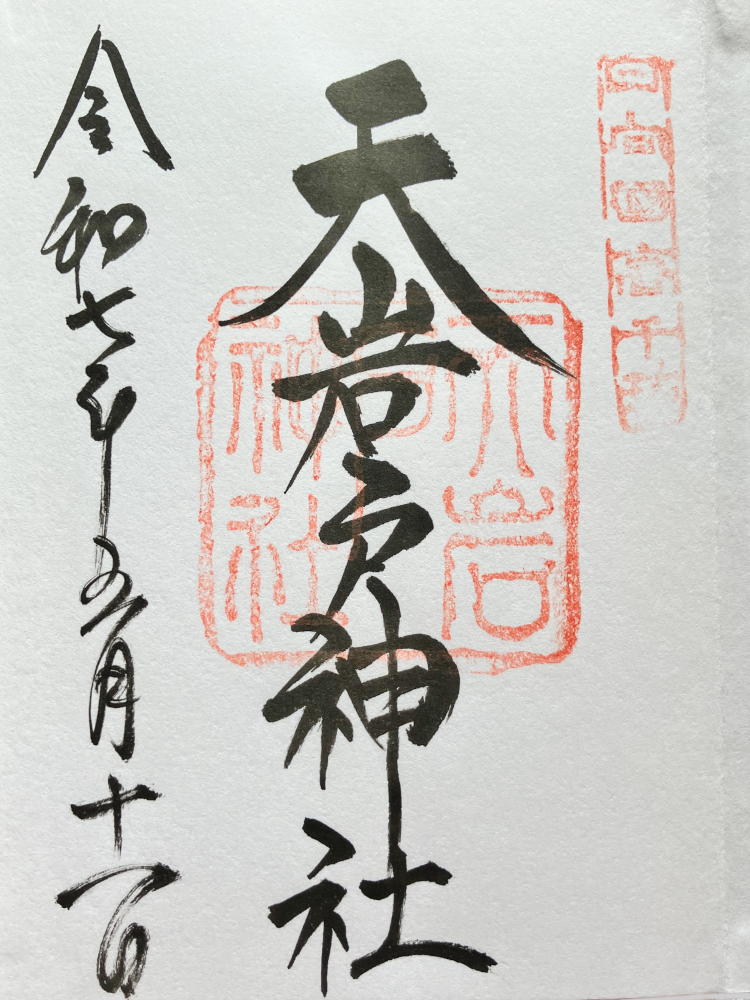 日向國高千穂
天岩戸神社
天岩戸神社
令和七年五月十一日